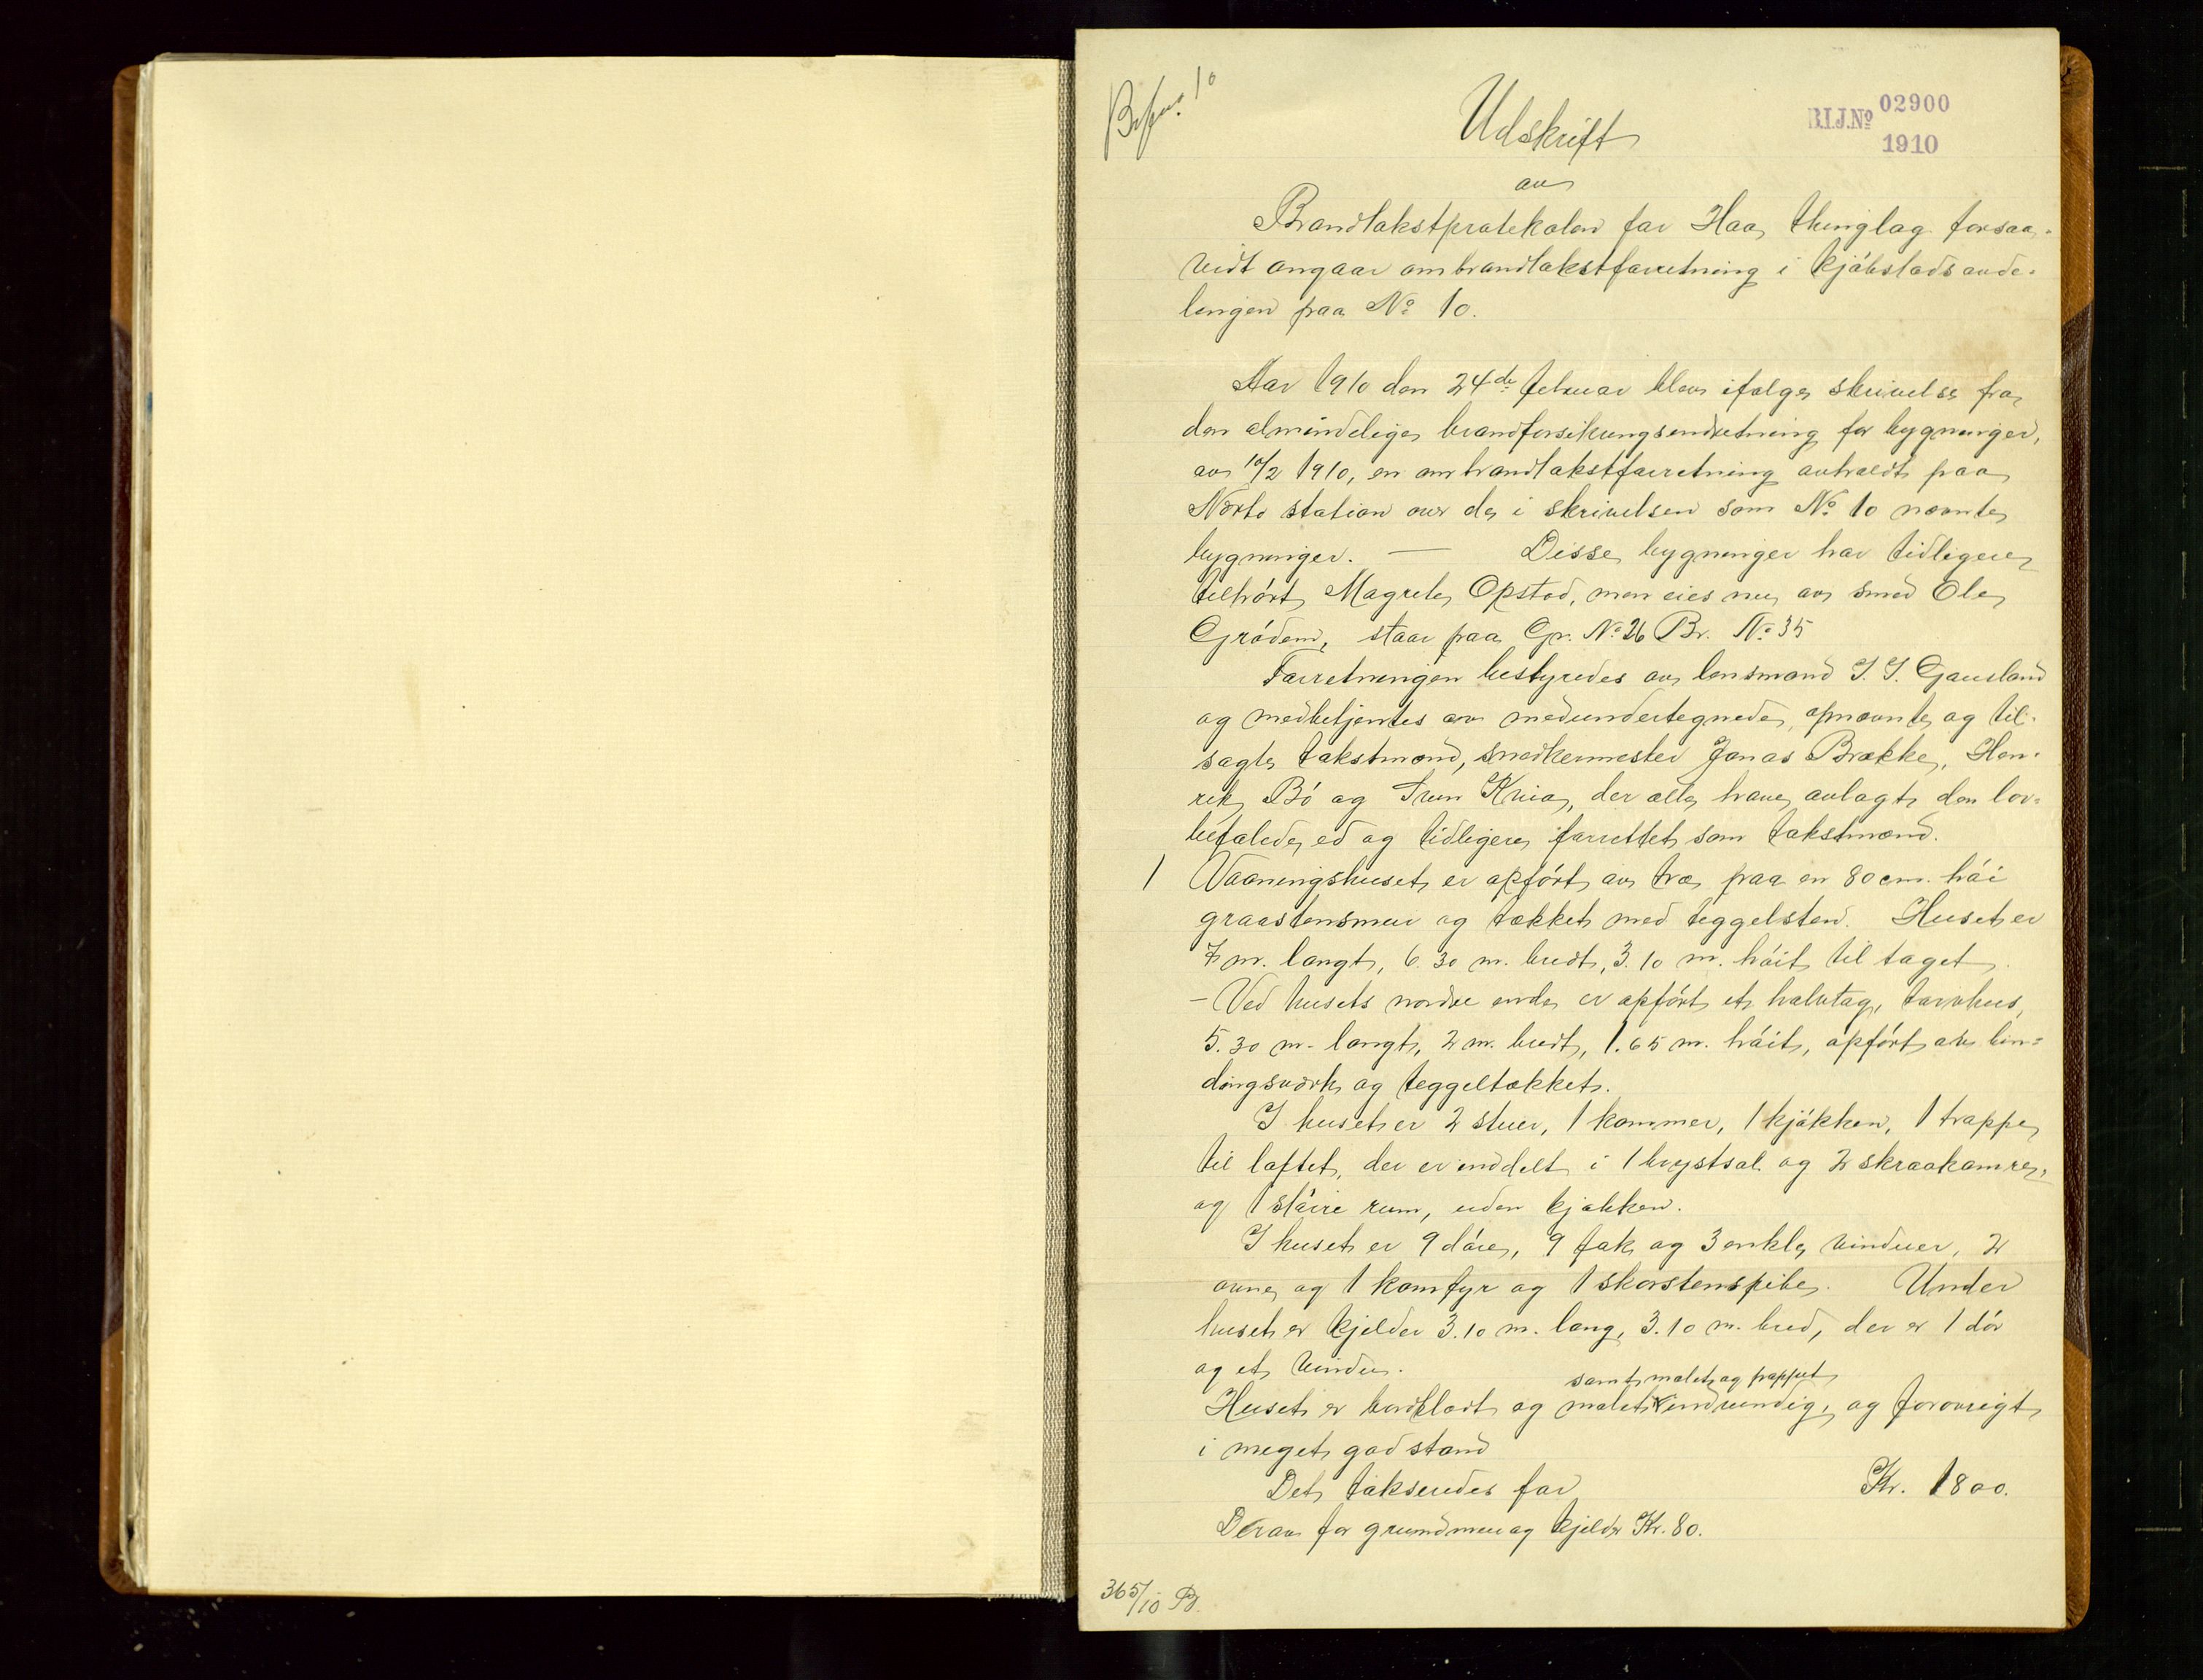 10
B.I.J.No 02900
1910
Udskrift
av
Brandtakstprotokolen for Haa thinglag forsaa-
vidt angaar ombrandtakstforretning i kjøbstadsavde-
lingen paa No 10.
Aar 1910 den 24de februar blev ifølge skrivelse fra
den almindelige brandforsikringsindretning for bygninger,
av 10/2 1910, en ombrandtakstforretning avholdt paa
Nærbø station over de i skrivelsen som No 10 nævnte
bygninger. — Disse bygninger har tidligere
tilhørt Magrete Opstad, men eies nu av smed Ole
Grødem, staar paa Gr. No 26 Br. No 35
Forretningen bestyredes av lensmand I. I. Gausland
og medbetjentes av medundertegnede, opnævnte og til-
sagte takstmænd, snedkermester Jonas Brække, Hen-
rik Bø og Sven Kvia, der alle have avlagt den lov-
befalede ed og tidligere forrettet som takstmænd.
1 Vaaningshuset er opført av træ paa en 80 cm. høi
graastensmur og tækket med teggelsten. Huset er
7 m. langt, 6.30 m. bredt, 3.10 m. høit til taget.
- Ved husets nordre ende er opført et halvtag, torvhus,
5.30 m. langt, 2 m. bredt, 1.65 m. høit, opført av bin-
dingsværk og teggeltækket.
I huset er 2 stuer, 1 kammer, 1 kjøkken, 1 trappe
til loftet, der er inddelt i 1 brystsal og 2 skraakamre,
og 1 større rum, uden kjøkken.
I huset er 9 døre, 9 fak og 3 enkle vinduer, 2
ovne og 1 komfyr og 1 skorstenspibe. Under
huset er kjelder 3.10 m. lang, 3.10 m. bred, der er 1 dør
og et vindu.
samt malet og pappet
Huset er bordklædt og malet indvendig, og forøvrigt
i meget god stand
Det takseredes for Kr. 1800.
Derav for grundmur og kjelder Kr. 80.
365/10 B.